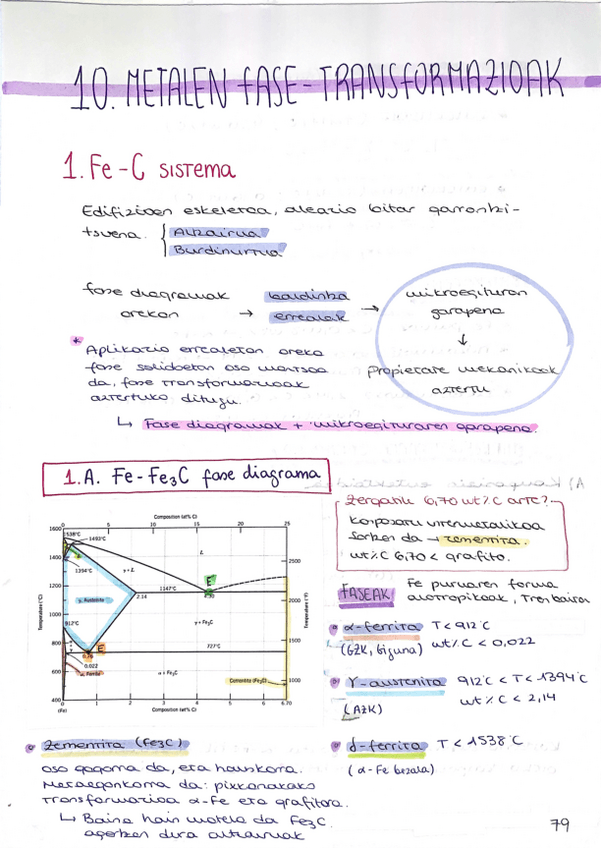 10. METALEN FASE-TRANSFORMAZIOAK
1. Fe-C SISTEMA
Edifizioen eskeletoa, aleazio bitar garrantzi-
tsuena.
Altzairua
Burdinurtua
fase diagramak
orekan
→
baldintza
errealak
→
mikroegituran
garapena
↓
Propietate mekanikoak
aztertu
* Aplikazio errealetan oreka
fase solidoetan oso motsoa
da, fase transformazioak
aztertuko ditugu.
↳ Fase diagramak + mikroegituraren garapena.
1.A. Fe-Fe₃C fase diagrama
Composition (at% C)
0 5 10 15 20 25
1600
1538°C
1493°C
L
1400
1394°C
γ + L
2500
1200
1147°C
E
2.14
4.30
γ, Austenite
1000
2000
γ + Fe₃C
912°C
800
E
727°C
1500
0.76
0.022
600
α, Ferrite
α + Fe₃C
Cementite (Fe₃C)
1000
400
Temperature (°C)
Temperature (°F)
0 1 2 3 4 5 6 6.70
(Fe)
Composition (wt% C)
Zergatik 6,70 wt% C arte?...
Konposatu intermetalikoa
sortzen da → zementita.
wt% C 6,70 < grafito.
FASEAK
Fe puruaren forma
alotropikoak,
α-ferrita T < 912°C
(GZK, biguna) wt% C < 0,022
γ-austenita 912°C < T < 1394°C
(AZK) wt% C < 2,14
δ-ferrita T < 1538°C
(α-Fe bezala)
Zementita (Fe₃C)
oso gogorra da, eta hauskorra.
Metaegonkorra da: pixkanakako
transformazioa α-Fe eta grafitora.
↳ Baina hain motela da Fe₃C
agertzen dira altzairuak
79